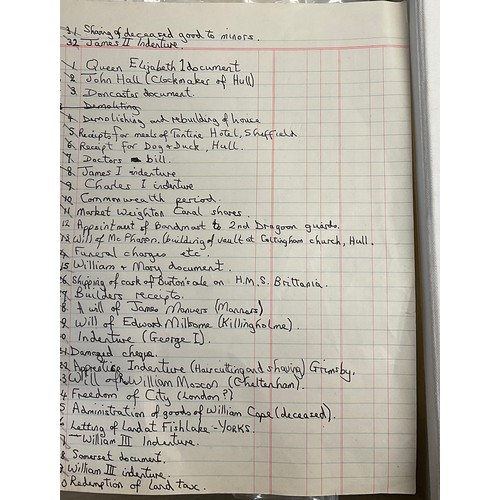 31 Sharing of deceased good to minors.
32 James II Indenture.
1 Queen Elizabeth 1 document
2 John Hall (Clockmaker of Hull)
3 Doncaster document.
Demoliting
4 Demolishing and rebuilding of house
5. Receipts for meals of Tontine Hotel, Sheffield
6 Receipt for Dog & Duck, Hull.
7. Doctors bill.
8. James I indenture
9 Charles I indenture
10 Commonwealth period.
11 Market Weighton Canal shares.
12 Appointment of Bandmast to 2nd Dragoon guards.
13 Will of McPharson, (building of vault at Cottingham church, Hull.
4 Funeral charges etc.
15 William & Mary document.
6 Shipping of cask of Burton's ale on H.M.S. Brittania.
7 Builders receipts.
8. A will of James Manvers (Manners)
9. Will of Edward Milbome (Killingholme).
0 Indenture (George I).
21. Damaged cheque.
22 Apprentice Indenture (Haircutting and shaving) Grimsby.
3 Will of William (Cheltenham).
4 Freedom of City (London?)
5 Administration of goods of William Cape (deceased).
6 Letting of Land at Fishlake - YORKS.
7 William III Indenture.
8 Somerset document.
9. William III indenture.
0 Redemption of land tax.